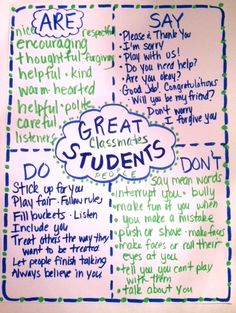 ARE
nice respectful
encouraging
thoughtful · forgiving
helpful · kind
warm-hearted
helpful · polite
careful
listeners
SAY
Please & Thank You
I'm sorry
Play with us!
Do you need help?
Are you okay?
Good Job! Congratulations
Will you be my friend?
Don't worry
I forgive you
GREAT
Classmates
STUDENTS
PEOPLE
DO
Stick up for you
Play fair · Follow rules
Fill buckets · Listen
Include you
Treat others the way they
want to be treated
Let people finish talking
Always believe in you
DON'T
say mean words
interrupt you · bully
make fun of you when
you make a mistake
push or shove · make faces
make faces or roll their
eyes at you
tell you you can't play
with them
talk about you